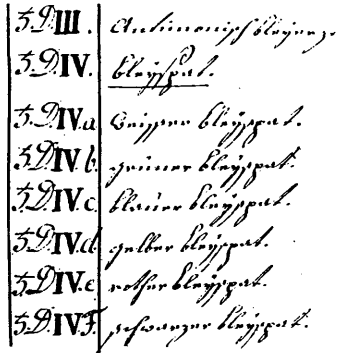 5.D III. Antimonisch bleyerz.
5.D IV. bleyspat.
5.D IV.a weisser bleyspat.
5.D IV.b grüner bleyspat.
5.D IV.c blauer bleyspat.
5.D IV.d gelber bleyspat.
5.D IV.e rother bleyspat.
5.D IV.F. schwarzer bleyspat.